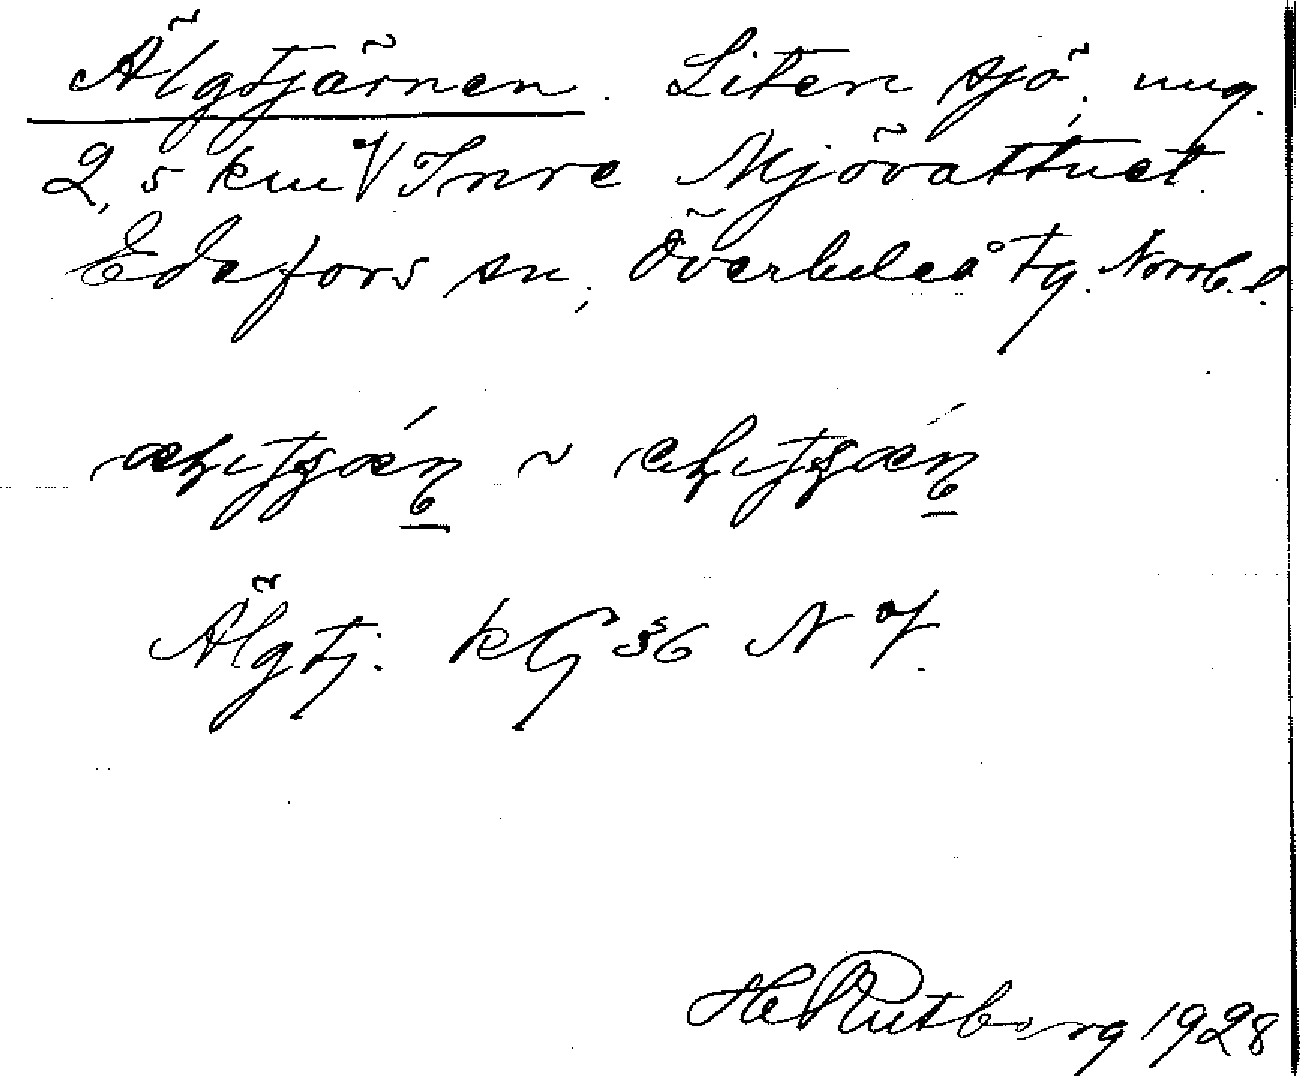 Älgtjärnen. Liten sjö, ung.
2,5 km V Inre Mjövattnet.
Edefors sn, Överluleå tg. Norrb. l.
Älgtj. kG 36 N
H Rutberg 1928